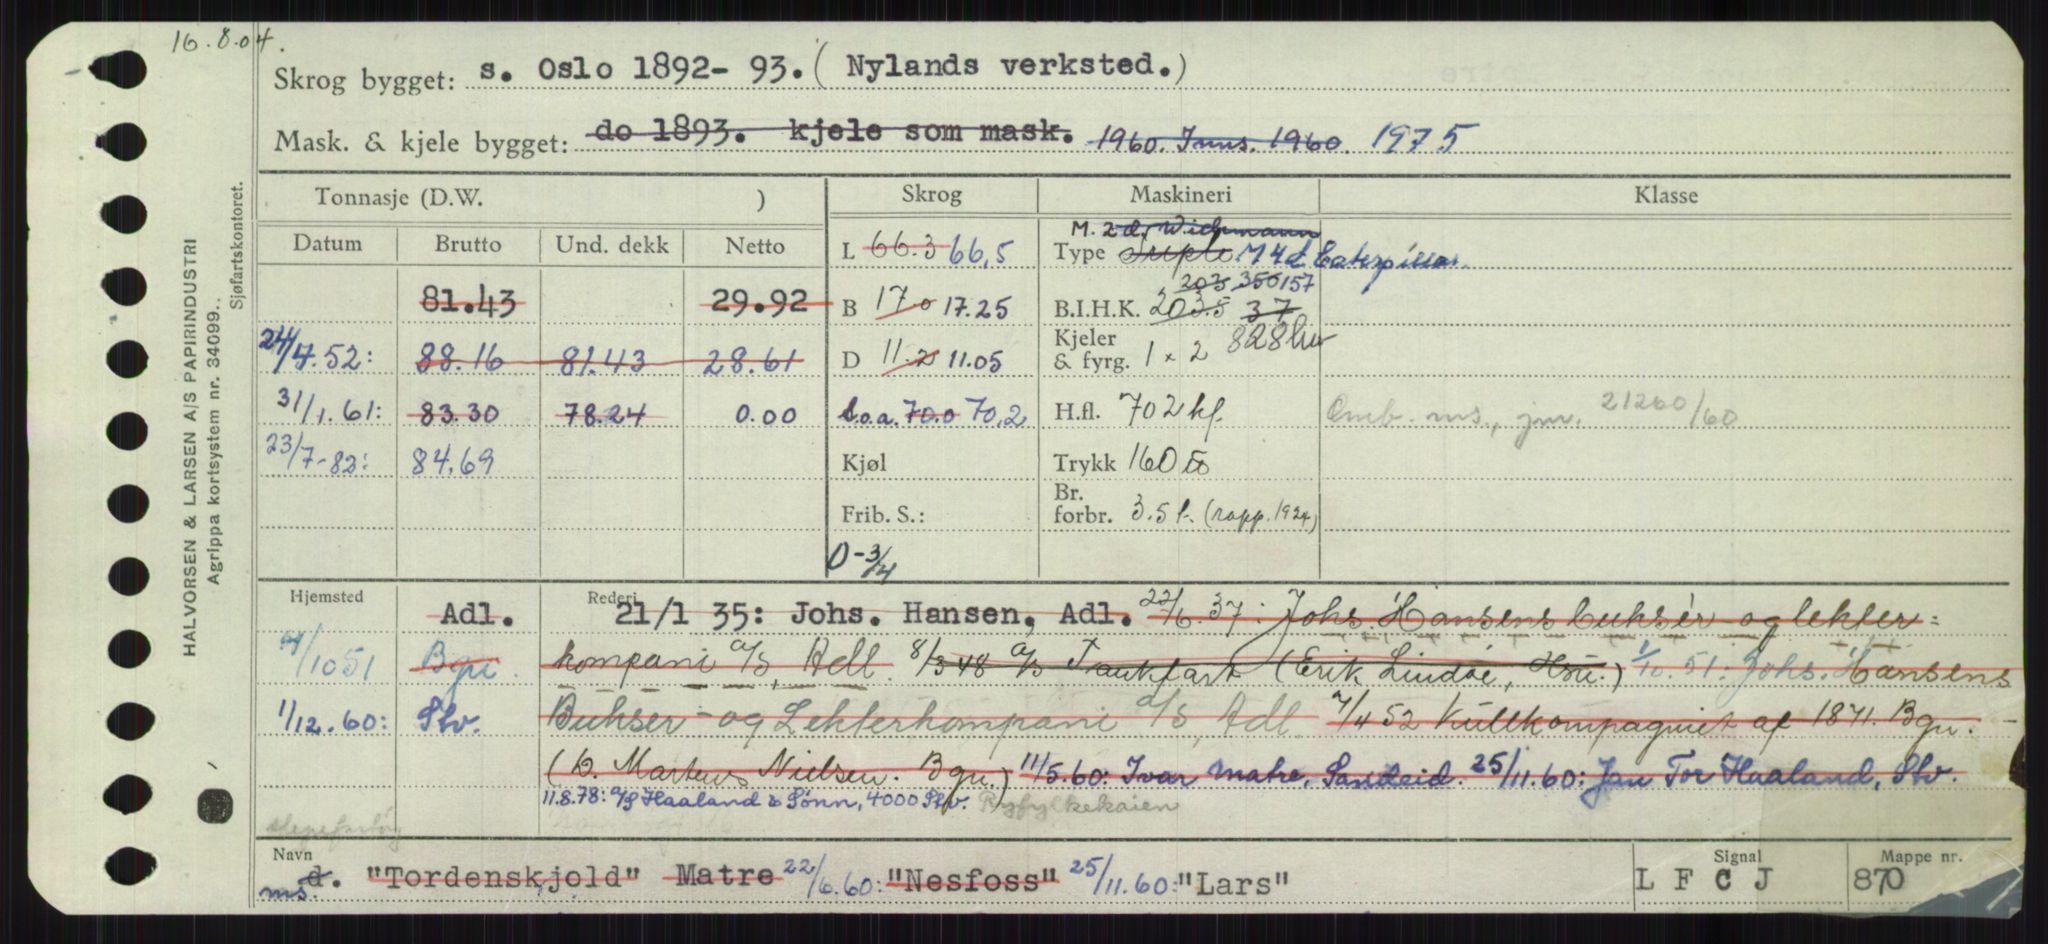 16.8.04.
Skrog bygget: s. Oslo 1892- 93. ( Nylands verksted.)
Mask. & kjele bygget: do 1893. kjele som mask. 1960. Inns. 1960. 1975
Tonnasje (D.W. ) Skrog Maskineri Klasse
Datum Brutto Und. dekk Netto
M. 2 d. Wichmann
L 66.3 66,5 Type Triple M 4 d Caterpillar
203 350 157
81.43 29.92 B 17.0 17.25 B.I.H.K. 203.5 37
24/4.52: 88.16 81.43 28.61 D 11.2 11.05 Kjeler & fyrg. 1 x 2 828
31/1.61: 83.30 78.24 0.00 L.o.a. 70.0 70,2 H.fl. 702 kf. Omb. ms., jnr. 21260/60
23/7-82: 84.69 Kjøl Trykk 160
Frib. S.: Br. forbr. 3.5 t. (rapp. 1924)
D-3/4
Hjemsted Adl. Rederi 21/1 35: Johs. Hansen, Adl. 22/6.37: Johs Hansens buksér og lekter=
1/10 51 Bgn. kompani A/S, Adl. 8/3 48 A/S Tankfart (Erik Lindøe, Hsu.) 1/10.51: Johs. Hansens
1/12.60: Stv. Bukser- og Lekterkompani A/S, Adl. 7/4 52 Kullkompagniet af 1871. Bgn.
(D. Martens Nielsen. Bgn.) 11/5.60: Ivar Matre, Sandeid. 25/11.60: Jan Tor Haaland, Stv.
11.8.78: A/S Haaland & Sønn, 4000 Stv. Ryfylkekaien
slepefartøy
Navn Signal Mappe nr.
d. "Tordenskjold" Matre 22/6.60: "Nesfoss" 25/11.60: "Lars" L F C J 870
ms.
HALVORSEN & LARSEN A/S PAPIRINDUSTRI
Agrippa kortsystem nr. 34099..
Sjøfartskontoret.